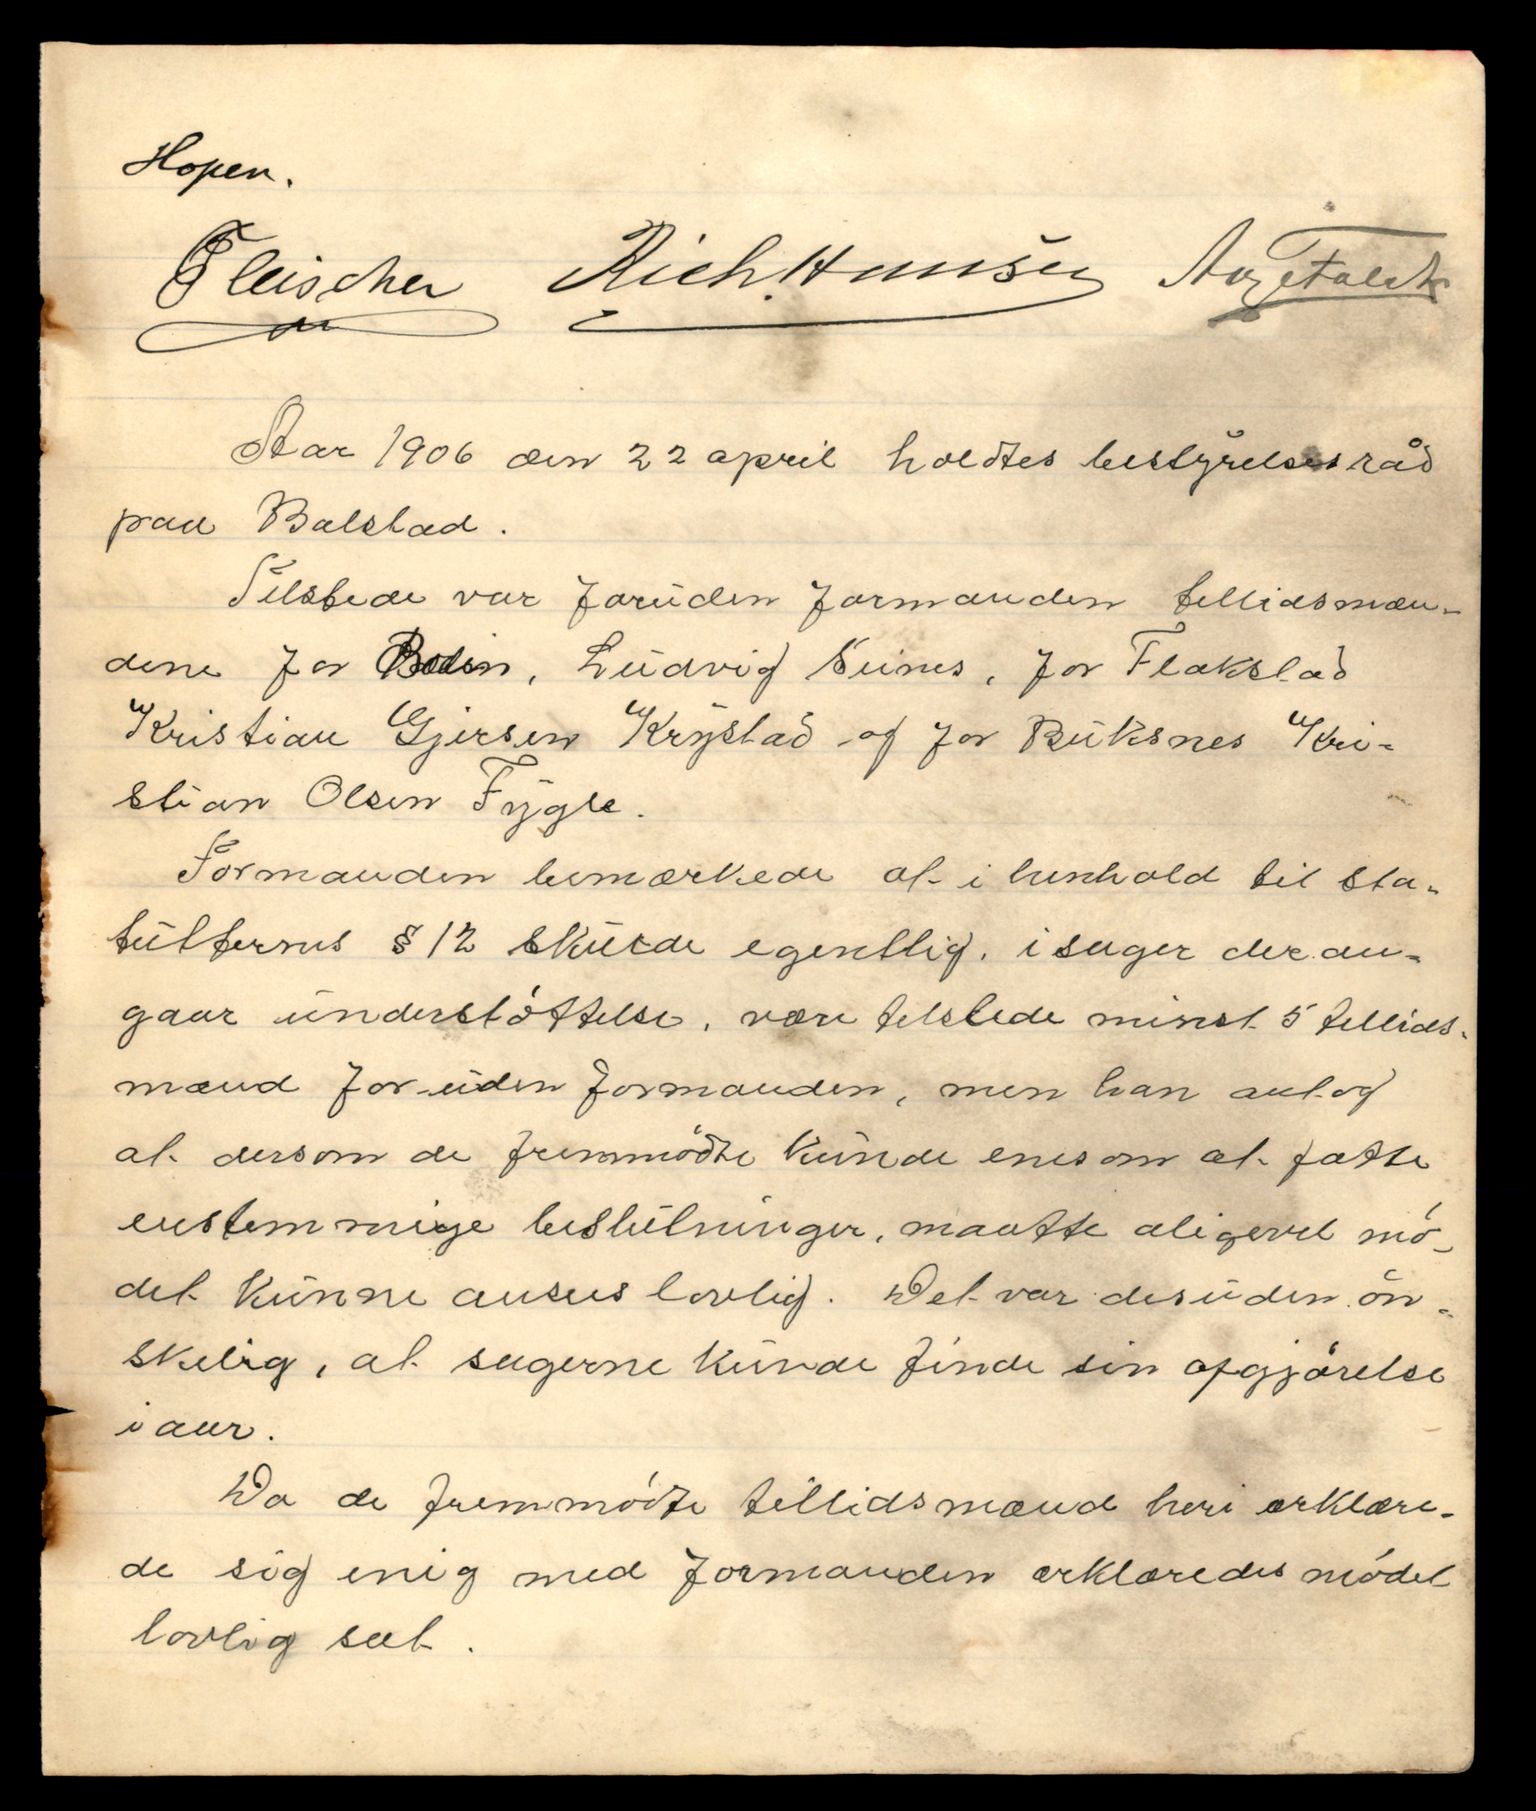 Hopen.
Fleischer Rich. Hansen Aug Falck
Aar 1906 den 22 april holdtes bestyrelsesråd
paa Balstad.
Tilstede var foruden formanden tillidsmæn-
dene for Bodin, Ludvig Seines, for Flakstad
Kristian Gjersen Krystad og for Buksnes Kri-
stian Olsen Fygle.
Formanden bemærkede at i henhold til sta-
tutternes § 12 skulde egentlig, i sager der an-
gaar understöttelse, være tilstede minst 5 tillids-
mænd foruden formanden, men han antog
at dersom de fremmödte kunde enes om at fatte
enstemmige beslutninger, maatte aligevel mö-
det kunne ansees lovlig. Det var desuden ön-
skelig, at sagerne kunde finde sin opgjörelse
i aar.
Da de fremmödte tillidsmænd heri erklære-
de sig enig med formanden erklæredes mödet
lovlig sat.